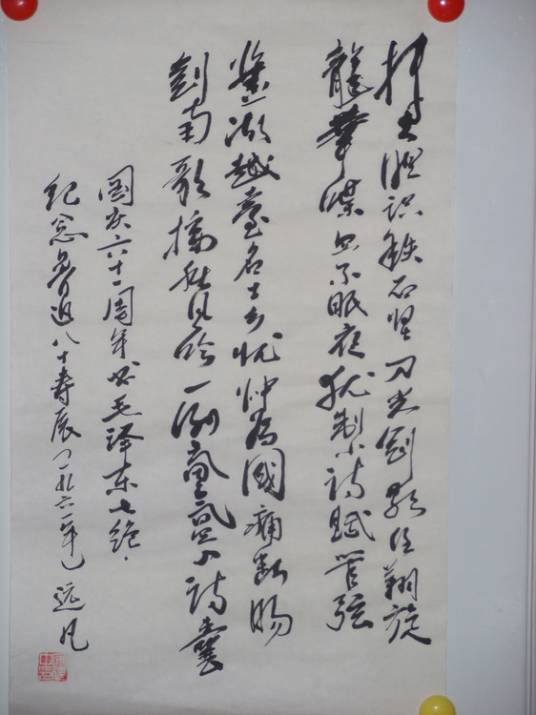 博大胆识铁石坚刀光剑影任翔旋
龍華喋血不眠夜犹制小诗赋管弦
鉴湖越臺名士乡忧忡为國痛断肠
剑南歌接秋风吟一例氤氲入诗囊
國庆六十一周年书毛泽东七绝·
纪念鲁迅八十寿辰(一九六一年)远凡